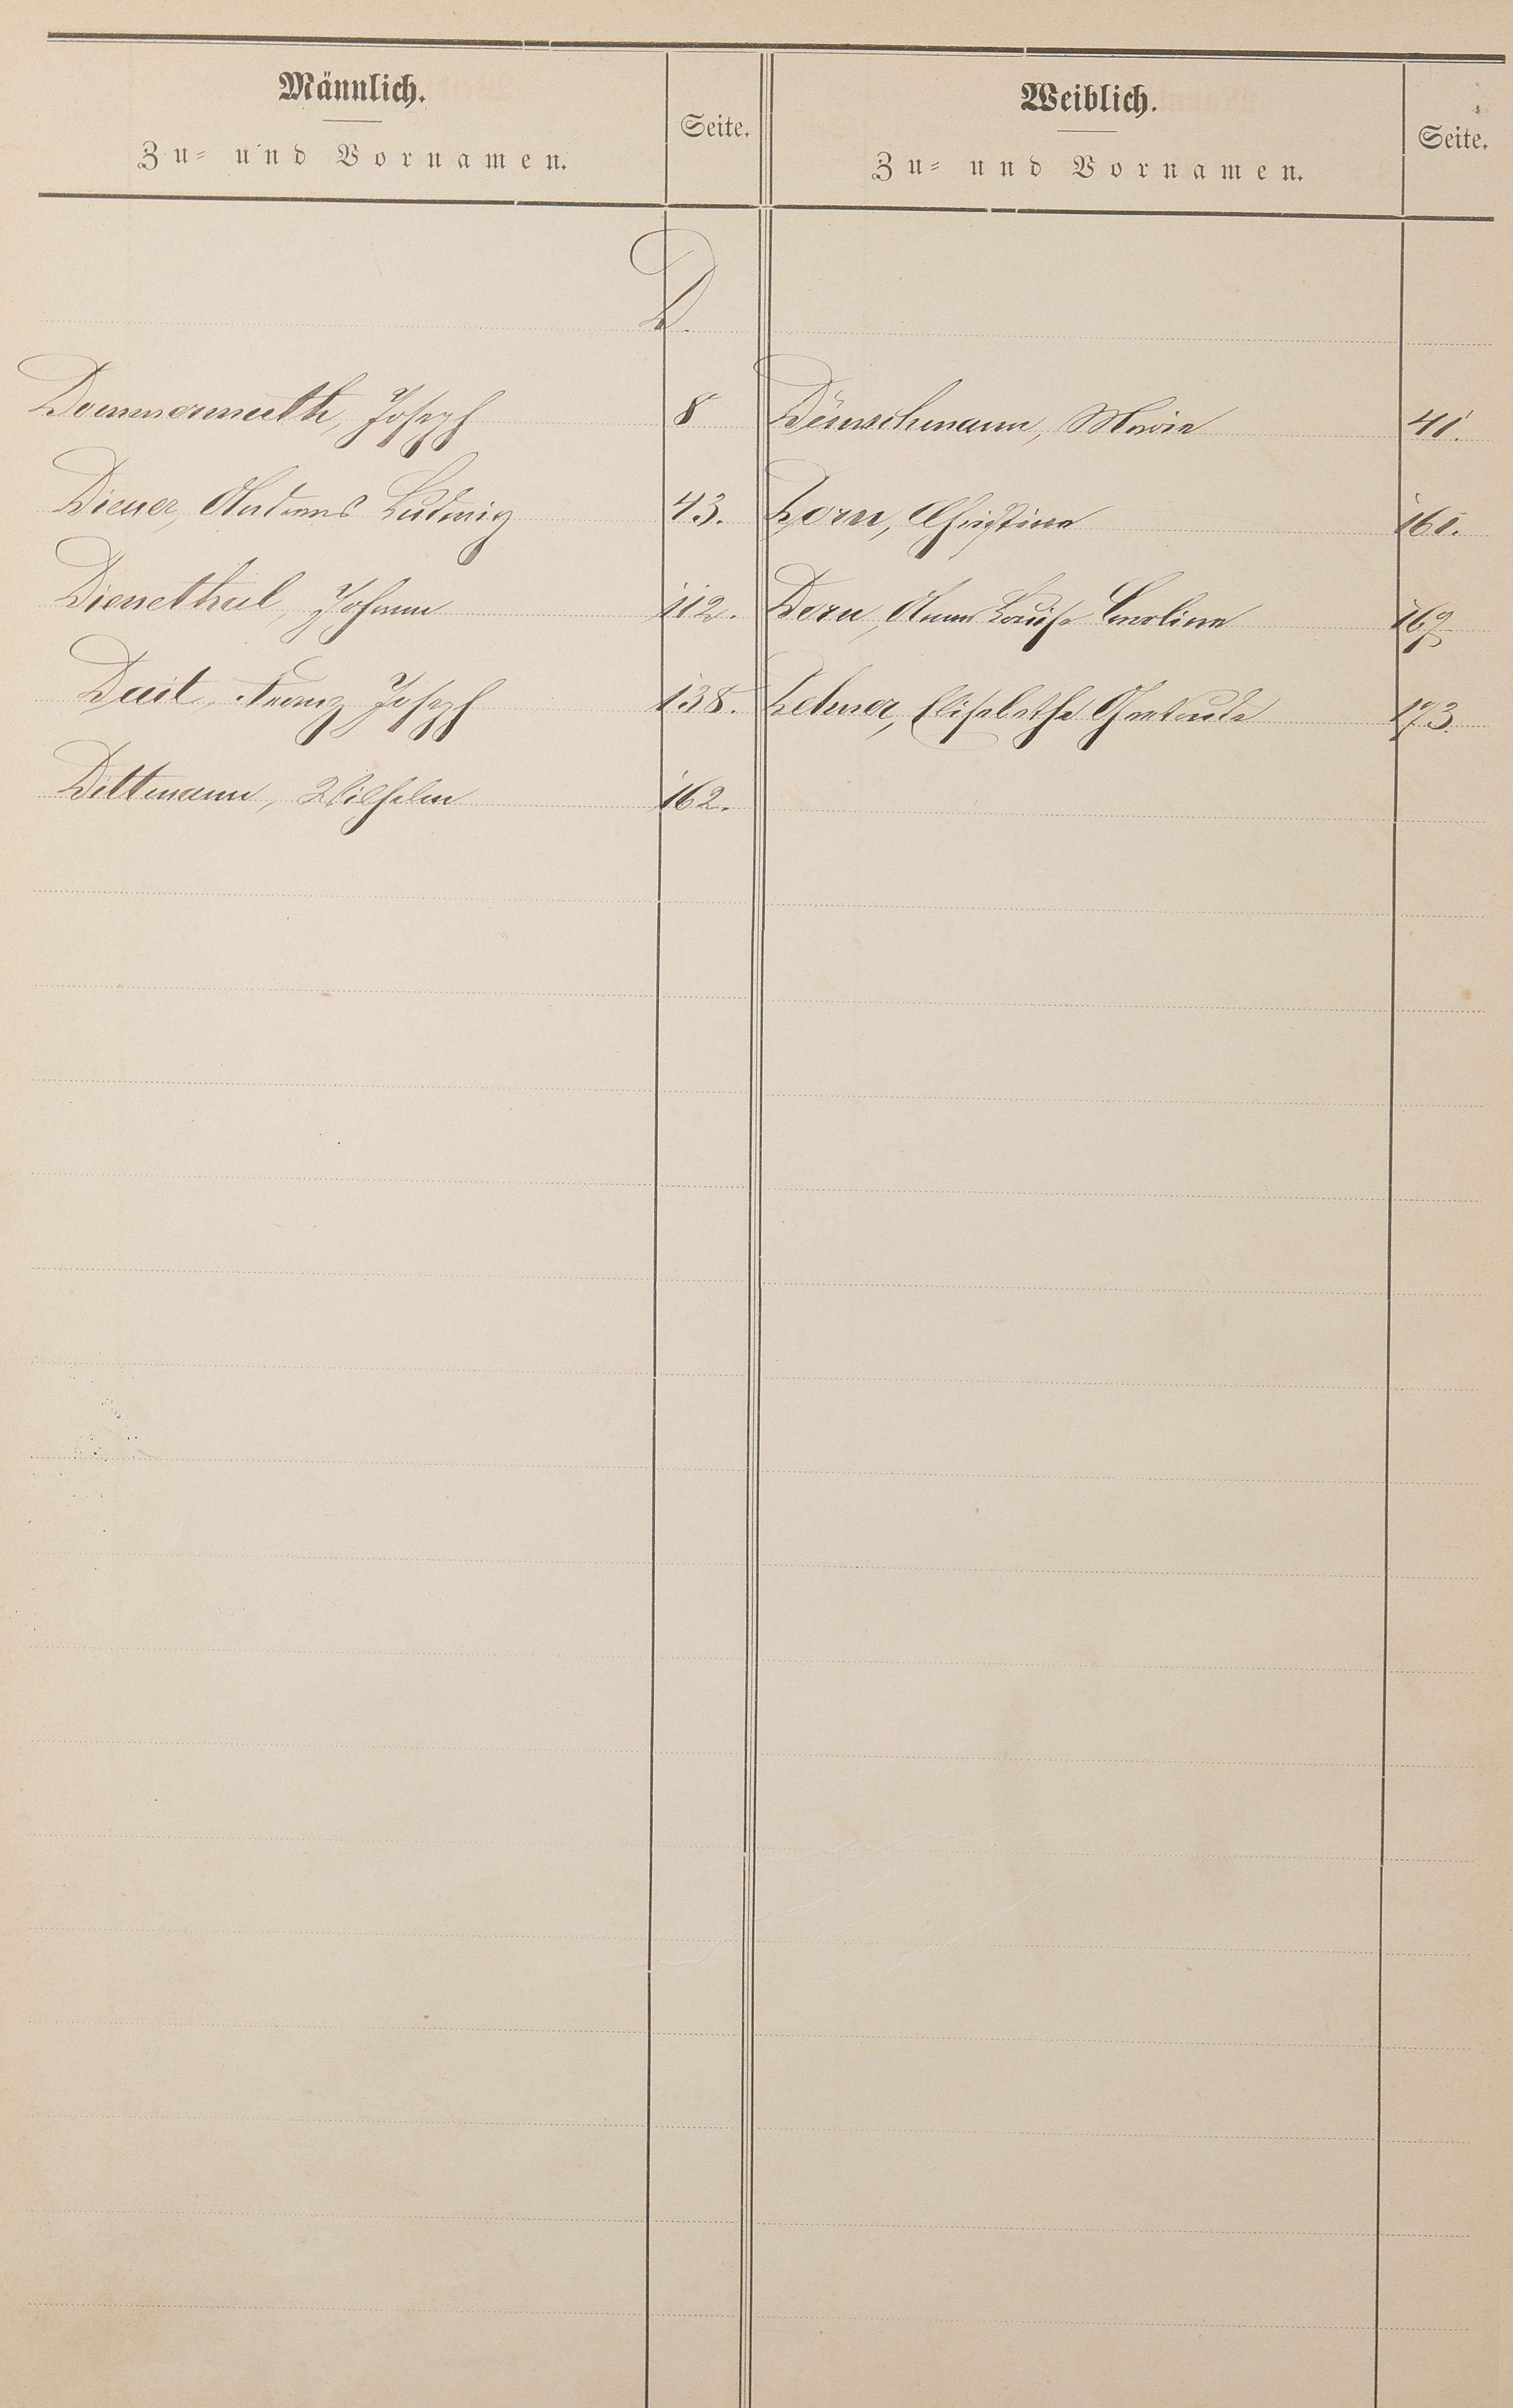 Männlich.
Zu- und Vornamen.
Seite.
Weiblich.
Zu- und Vornamen.
Seite.
D.
Dommermuth, Joseph 8
Diener, Andreas Ludwig 43.
Dienethal, Johann 112.
Duit, Franz Joseph 138.
Dittmann, Wilhelm 162.
Marie 41.
Dorn, Christine 161.
Dorn, Anna Louise Caroline 167
Dehner, Elisabetha Gertrude 173